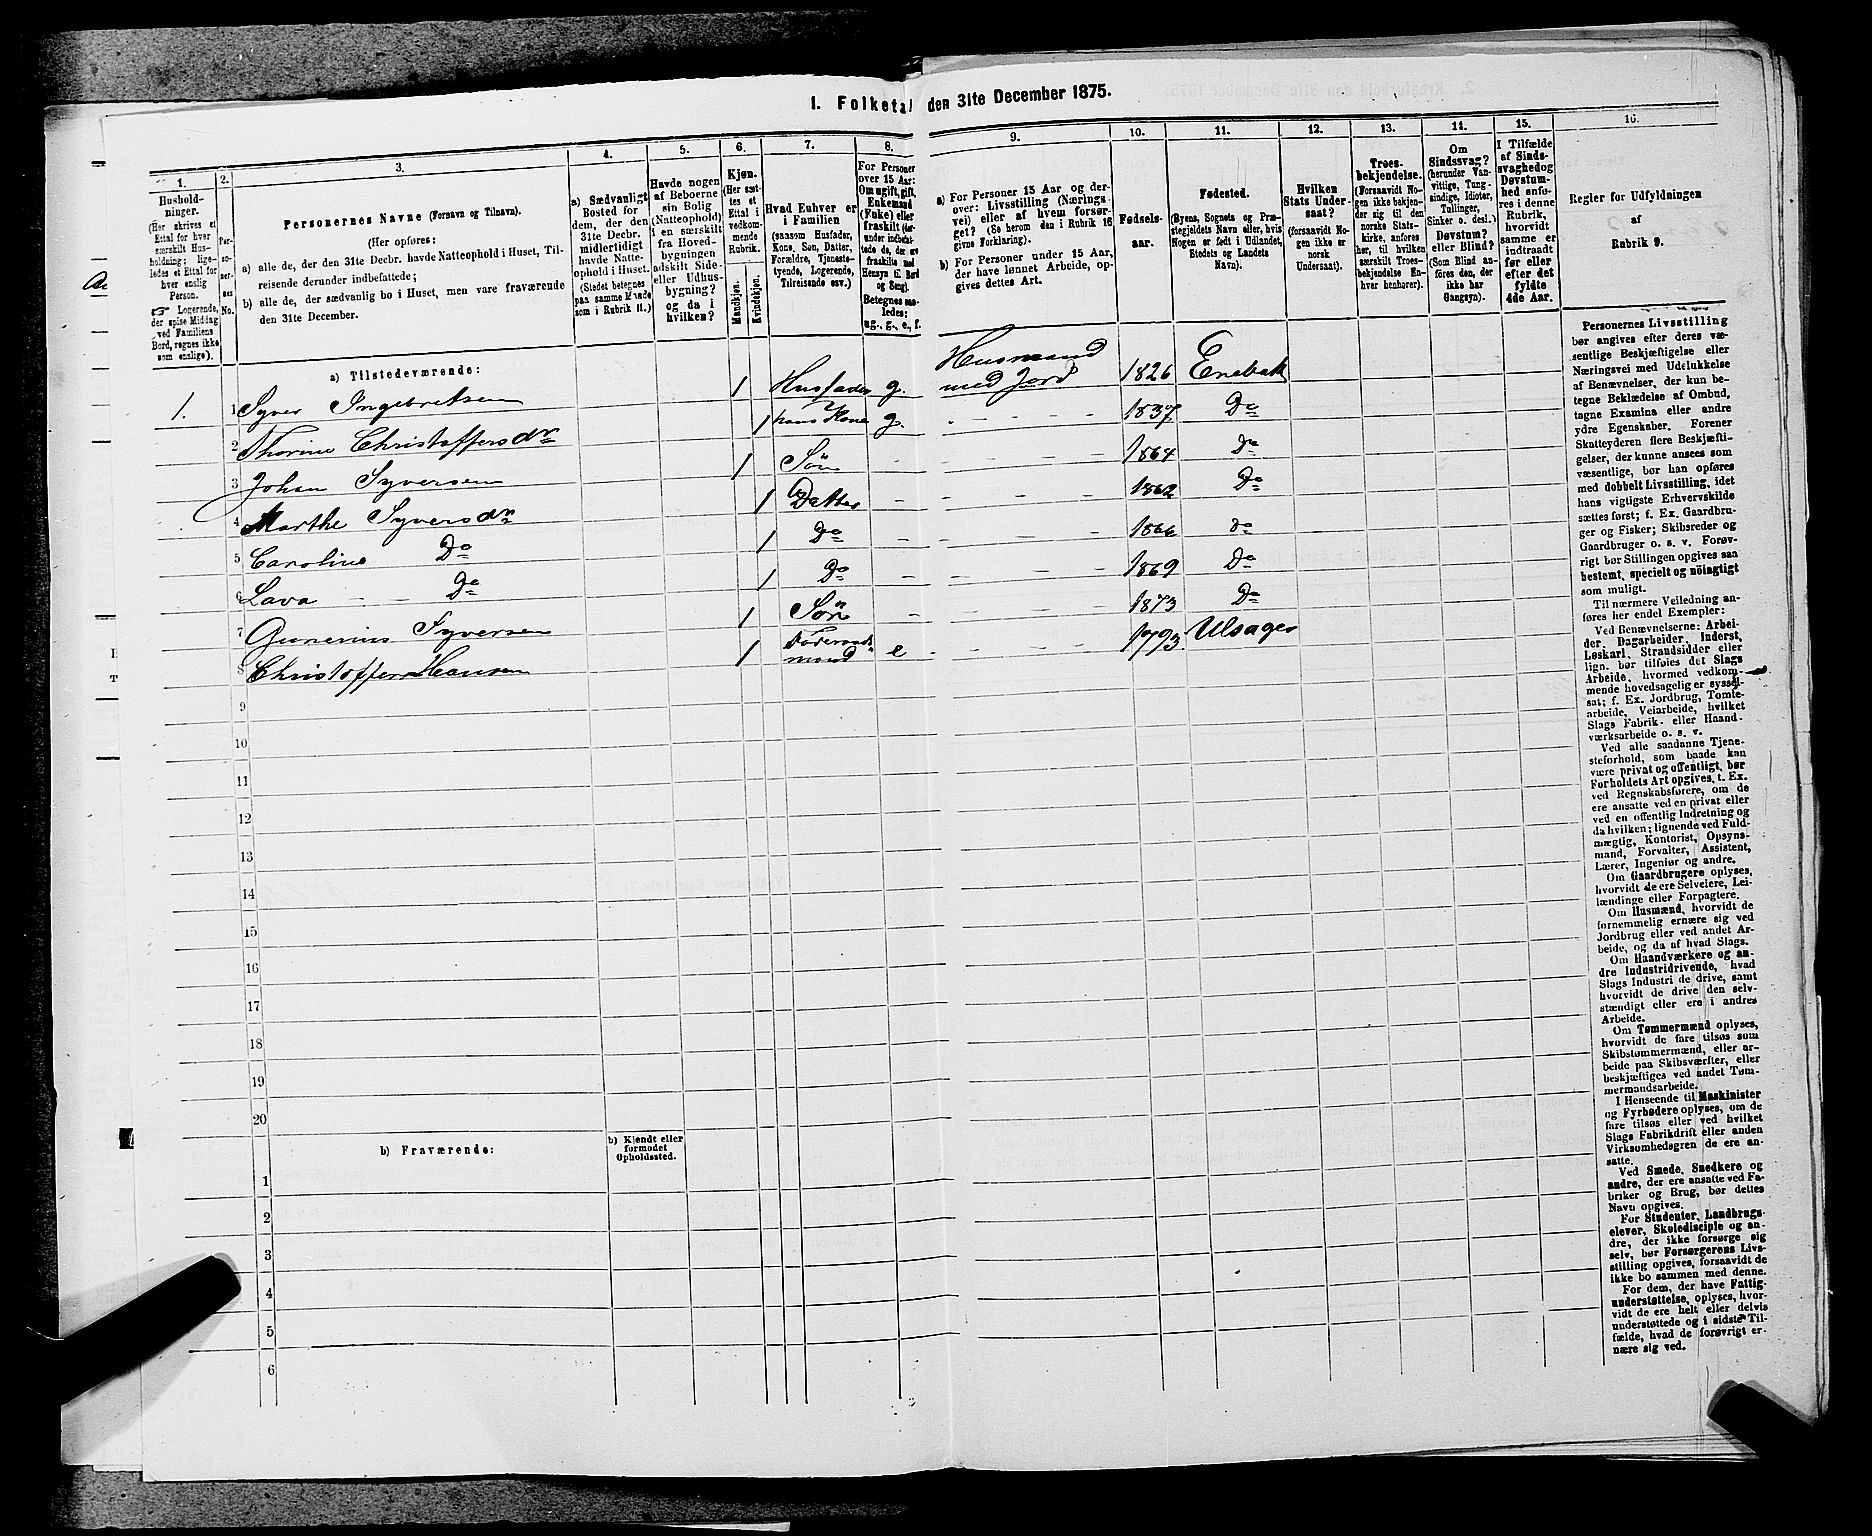 1. Folketal den 31te December 1875.
1.
Hushold-
ninger.
(Her skrives et
Ettal for hver
særskilt Hus-
holdning; lige-
ledes et Ettal for
hver enslig
Person.
☞ Logerende,
der spise Middag
ved Familiens
Bord, regnes ikke
som enslige).
2.
Per-
so-
ner-
nes
No.
3.
Personernes Navne (Fornavn og Tilnavn).
(Her opføres:
a) alle de, der den 31te Decbr. havde Natteophold i Huset, Til-
reisende derunder indbefattede;
b) alle de, der sædvanlig bo i Huset, men vare fraværende
den 31te December.
4.
a) Sædvanligt
Bosted for
dem, der den
31te Decbr.
midlertidigt
havde Natte-
ophold i Huset.
(Stedet betegnes
paa samme Maade
som i Rubrik 11.)
5.
Havde nogen
af Beboerne
sin Bolig
(Natteophold)
i en særskilt
fra Hoved-
bygningen
adskilt Side-
eller Udhus-
bygning?
og da i
hvilken?
6.
Kjøn.
(Her sæt-
tes et
Ettal i
vedkom-
mende
Rubrik.
Mandkjøn.
Kvindekjøn.
7.
Hvad Enhver er
i Familien
(saasom Husfader,
Kone, Søn, Datter,
Forældre, Tjeneste-
tyende, Logerende,
Tilreisende osv.)
8.
For Personer
over 15 Aar:
Om ugift, gift,
Enkemand
(Enke) eller
fraskilt (der-
under indbefat-
tede de, der ere
fraskilte med
Hensyn til Bord
og Seng).
Betegnes saa-
ledes:
ug., g., e., f.
9.
a) For Personer 15 Aar og der-
over: Livsstilling (Nærings-
vei) eller af hvem forsør-
get? (Se herom den i Rubrik 16
givne Forklaring).
b) For Personer under 15 Aar,
der have lønnet Arbeide, op-
gives dettes Art.
10.
Fødsels-
aar.
11.
Fødested.
(Byens, Sognets og Præ-
stegjeldets Navn eller, hvis
Nogen er født i Udlandet,
Stedets og Landets
Navn).
12.
Hvilken
Stats Under-
saat?
(forsaavidt No-
gen ikke er
norsk
Undersaat).
13.
Troes-
bekjendelse.
(Forsaavidt No-
gen ikke bekjen-
der sig til den
norske Stats-
kirke, anføres
her, til hvilken
særskilt Troes-
bekjendelse En-
hver henhører).
14.
Om
Sindssvag?
(herunder Van-
vittige, Tung-
sindige, Idioter,
Tullinger,
Sinker o. desl.)
Døvstum?
eller Blind?
(Som Blind an-
føres den, der
ikke har
Gangsyn).
15.
I Tilfælde
af Sinds-
svaghed og
Døvstum-
hed anfø-
res i denne
Rubrik,
hvorvidt
samme er
indtraadt
før eller
efter det
fyldte
4de Aar.
16.
Regler for Udfyldningen
af
Rubrik 9.
a) Tilstedeværende:
1. 1 Syver Ingebretsen 1 Husfader g. Husmand med Jord 1826 Enebak
2 Thorine Christoffersdr 1 hans Kone g. 1837 Do
3 Johan Syversen 1 Søn 1864 Do
4 Marthe Syversdr 1 Datter 1862 Do
5 Caroline Do 1 Do 1866 Do
6 Lava Do 1 Do 1869 Do
7 Gunerius Syversen 1 Søn 1873 Do
8 Christoffer Hansen 1 Föderaadsmand e 1793 Ulsager
9
10
11
12
13
14
15
16
17
18
19
20
b) Fraværende:
b) Kjendt eller
formodet
Opholdssted.
1
2
3
4
5
6
Personernes Livsstilling
bør angives efter deres væ-
sentlige Beskjæftigelse eller
Næringsvei med Udelukkelse
af Benævnelser, der kun be-
tegne Beklædelse af Ombud,
tagne Examina eller andre
ydre Egenskaber. Forener
Skatteyderen flere Beskjæfti-
gelser, der kunne ansees som
væsentlige, bør han opføres
med dobbelt Livsstilling, idet
hans vigtigste Erhvervskilde
sættes først; f. Ex. Gaardbru-
ger og Fisker; Skibsreder og
Gaardbruger o. s. v. Forøv-
rigt bør Stillingen opgives saa
bestemt, specielt og nöiagtigt
som muligt.
Til nærmere Veiledning an-
føres her endel Exempler:
Ved Benævnelserne: Arbei-
der, Dagarbeider, Inderst,
Løskarl, Strandsidder eller
lign. bør tilføies det Slags
Arbeide, hvormed vedkom-
mende hovedsagelig er syssel-
sat; f. Ex. Jordbrug, Tomte-
arbeide, Veiarbeide, hvilket
Slags Fabrik- eller Haand-
værksarbeide o. s. v.
Ved alle saadanne Tjene-
steforhold, som baade kan
være privat og offentligt, bør
Forholdets Art opgives, t. Ex.
ved Regnskabsførere, om de
ere ansatte ved en privat eller
ved en offentlig Indretning og
da hvilken; lignende ved Fuld-
mægtig, Kontorist, Opsyns-
mand, Forvalter, Assistent,
Lærer, Ingeniør og andre.
Om Gaardbrugere oplyses,
hvorvidt de ere Selveiere, Lei-
lændinge eller Forpagtere.
Om Husmænd, hvorvidt de
fornemmelig ernære sig ved
Jordbrug eller ved andet Ar-
beide, og da af hvad Slags.
Om Haandværkere og an-
dre Industridrivende, hvad
Slags Industri de drive, samt
hvorvidt de drive den selv-
stændigt eller ere i andres
Arbeide.
Om Tømmermænd oplyses,
hvorvidt de fare tilsøs som
Skibstømmermænd, eller ar-
beide paa Skibsværfter, eller
beskjæftiges ved andet Tøm-
mermandsarbeide.
I Henseende til Maskinister
og Fyrbødere oplyses, om de
fare tilsøs eller ved hvilket
Slags Fabrikdrift eller anden
Virksomhedsgren de ere an-
satte.
Ved Smede, Snedkere og
andre, der ere ansatte ved Fa-
briker og Brug, bør dettes
Navn opgives.
For Studenter, Landbrugs-
elever, Skoledisciple og an-
dre, der ikke forsørge sig
selv, bør Forsørgerens Livs-
stilling opgives, forsaavidt de
ikke bo sammen med denne.
For dem, der have Fattig-
understøttelse, oplyses, hvor-
vidt de ere helt eller delvis
understøttede og i sidste Til-
fælde, hvad de forøvrigt er-
nære sig ved.